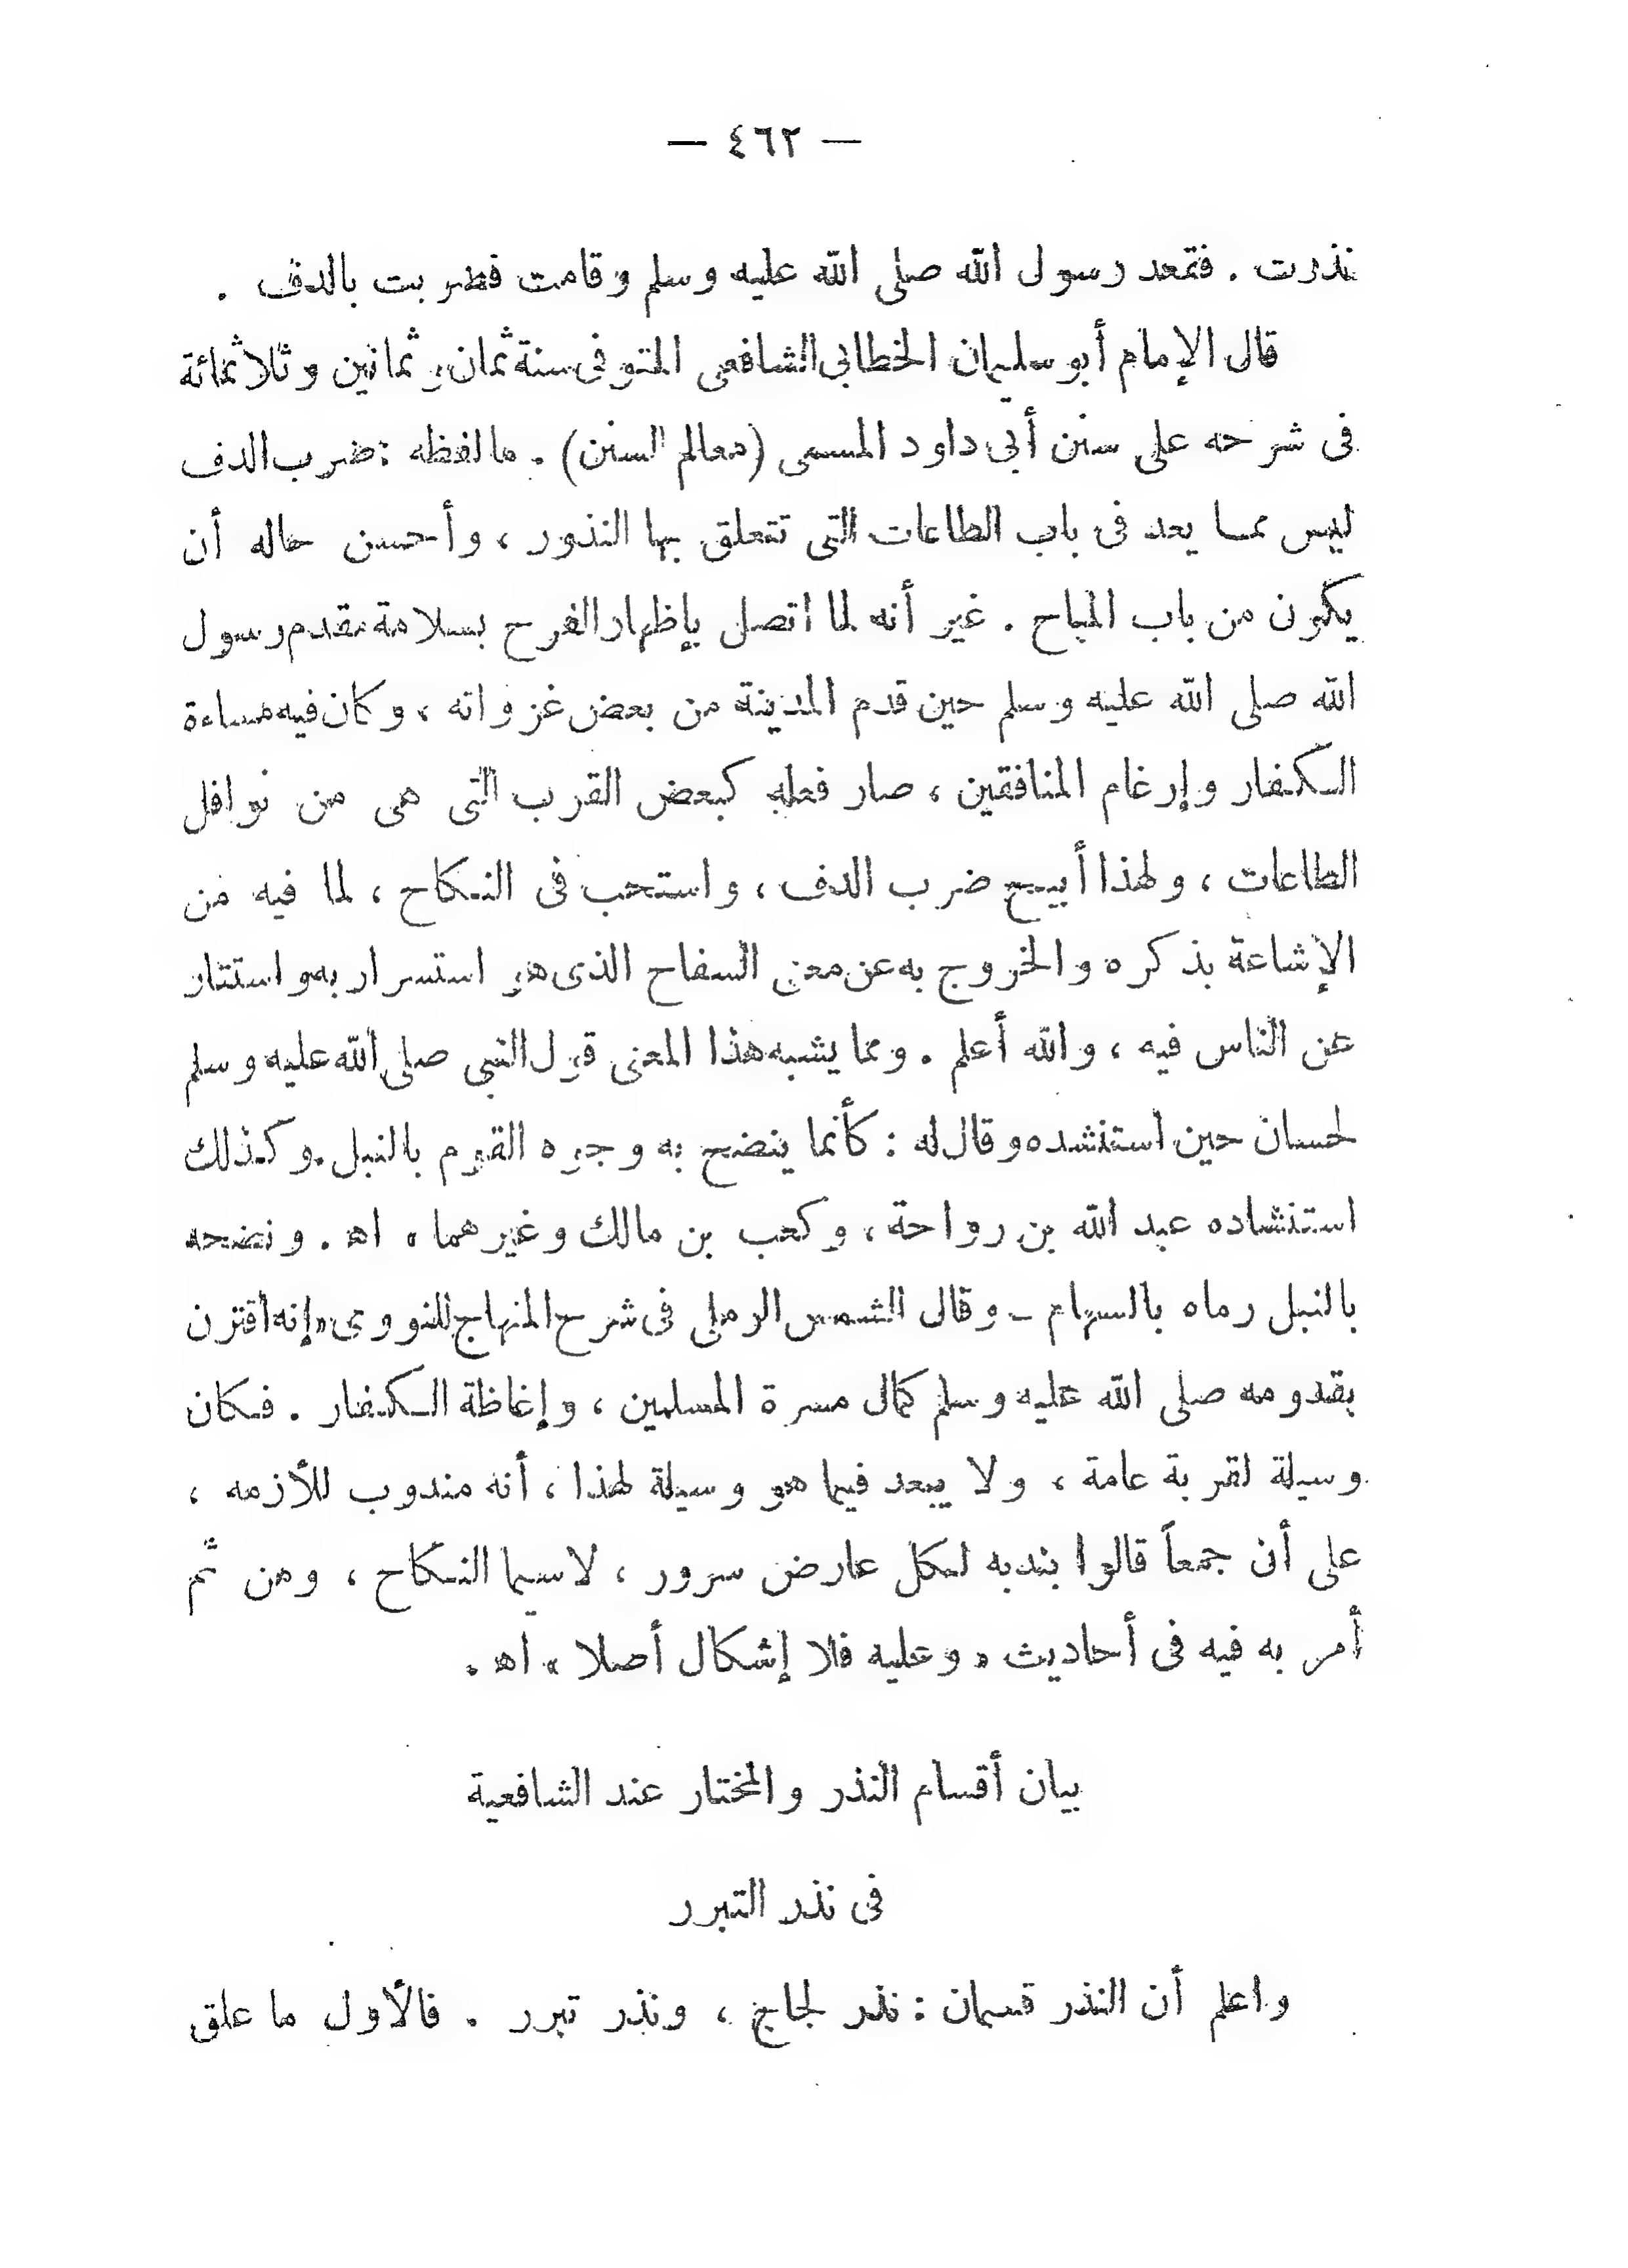 — ٤٦٢ —
نذرت . فقعد رسول الله صلى الله عليه وسلم وقامت فضربت بالدف .
قال الإمام أبو سليمان الخطابى الشافعى المتوفى سنة ثمان وثمانين وثلاثمائة
فى شرحه على سنن أبى داود المسمى (معالم السنن) . ما لفظه : ضرب الدف
ليس مما يعد فى باب الطاعات التى تتعلق بها النذور ، وأحسن حاله أن
يكون من باب المباح . غير أنه لما اتصل بإظهار الفرح بسلامة مقدم رسول
الله صلى الله عليه وسلم حين قدم المدينة من بعض غزواته ، وكان فيه مساءة
الكفار وإرغام المنافقين ، صار فعله كبعض القرب التى هى من نوافل
الطاعات ، ولهذا أبيح ضرب الدف ، واستحب فى النكاح ، لما فيه من
الإشاعة بذكره والخروج به عن معنى السفاح الذى هو استسرار به واستتار
عن الناس فيه ، والله أعلم . ومما يشبه هذا المعنى قول النبى صلى الله عليه وسلم
لحسان حين استنشده وقال له : كأنما ينضح به وجوه القوم بالنبل . وكذلك
استنشاده عبد الله بن رواحة ، وكعب بن مالك وغيرهما . اه . ونضحه
بالنبل رماه بالسهام ـ وقال الشمس الرملى فى شرح المنهاج للنووى «إنه اقترن
بقدومه صلى الله عليه وسلم كمال مسرة المسلمين ، وإغاظة الكفار . فكان
وسيلة لقربة عامة ، ولا يبعد فيما هو وسيلة لهذا ، أنه مندوب للأزمه ،
على أن جمعاً قالوا بندبه لكل عارض سرور ، لاسيما النكاح ، ومن ثم
أمر به فيه فى أحاديث « وعليه فلا إشكال أصلا » اه .
بيان أقسام النذر والمختار عند الشافعية
فى نذر التبرر
واعلم أن النذر قسمان : نذر لجاج ، ونذر تبرر . فالأول ما علق